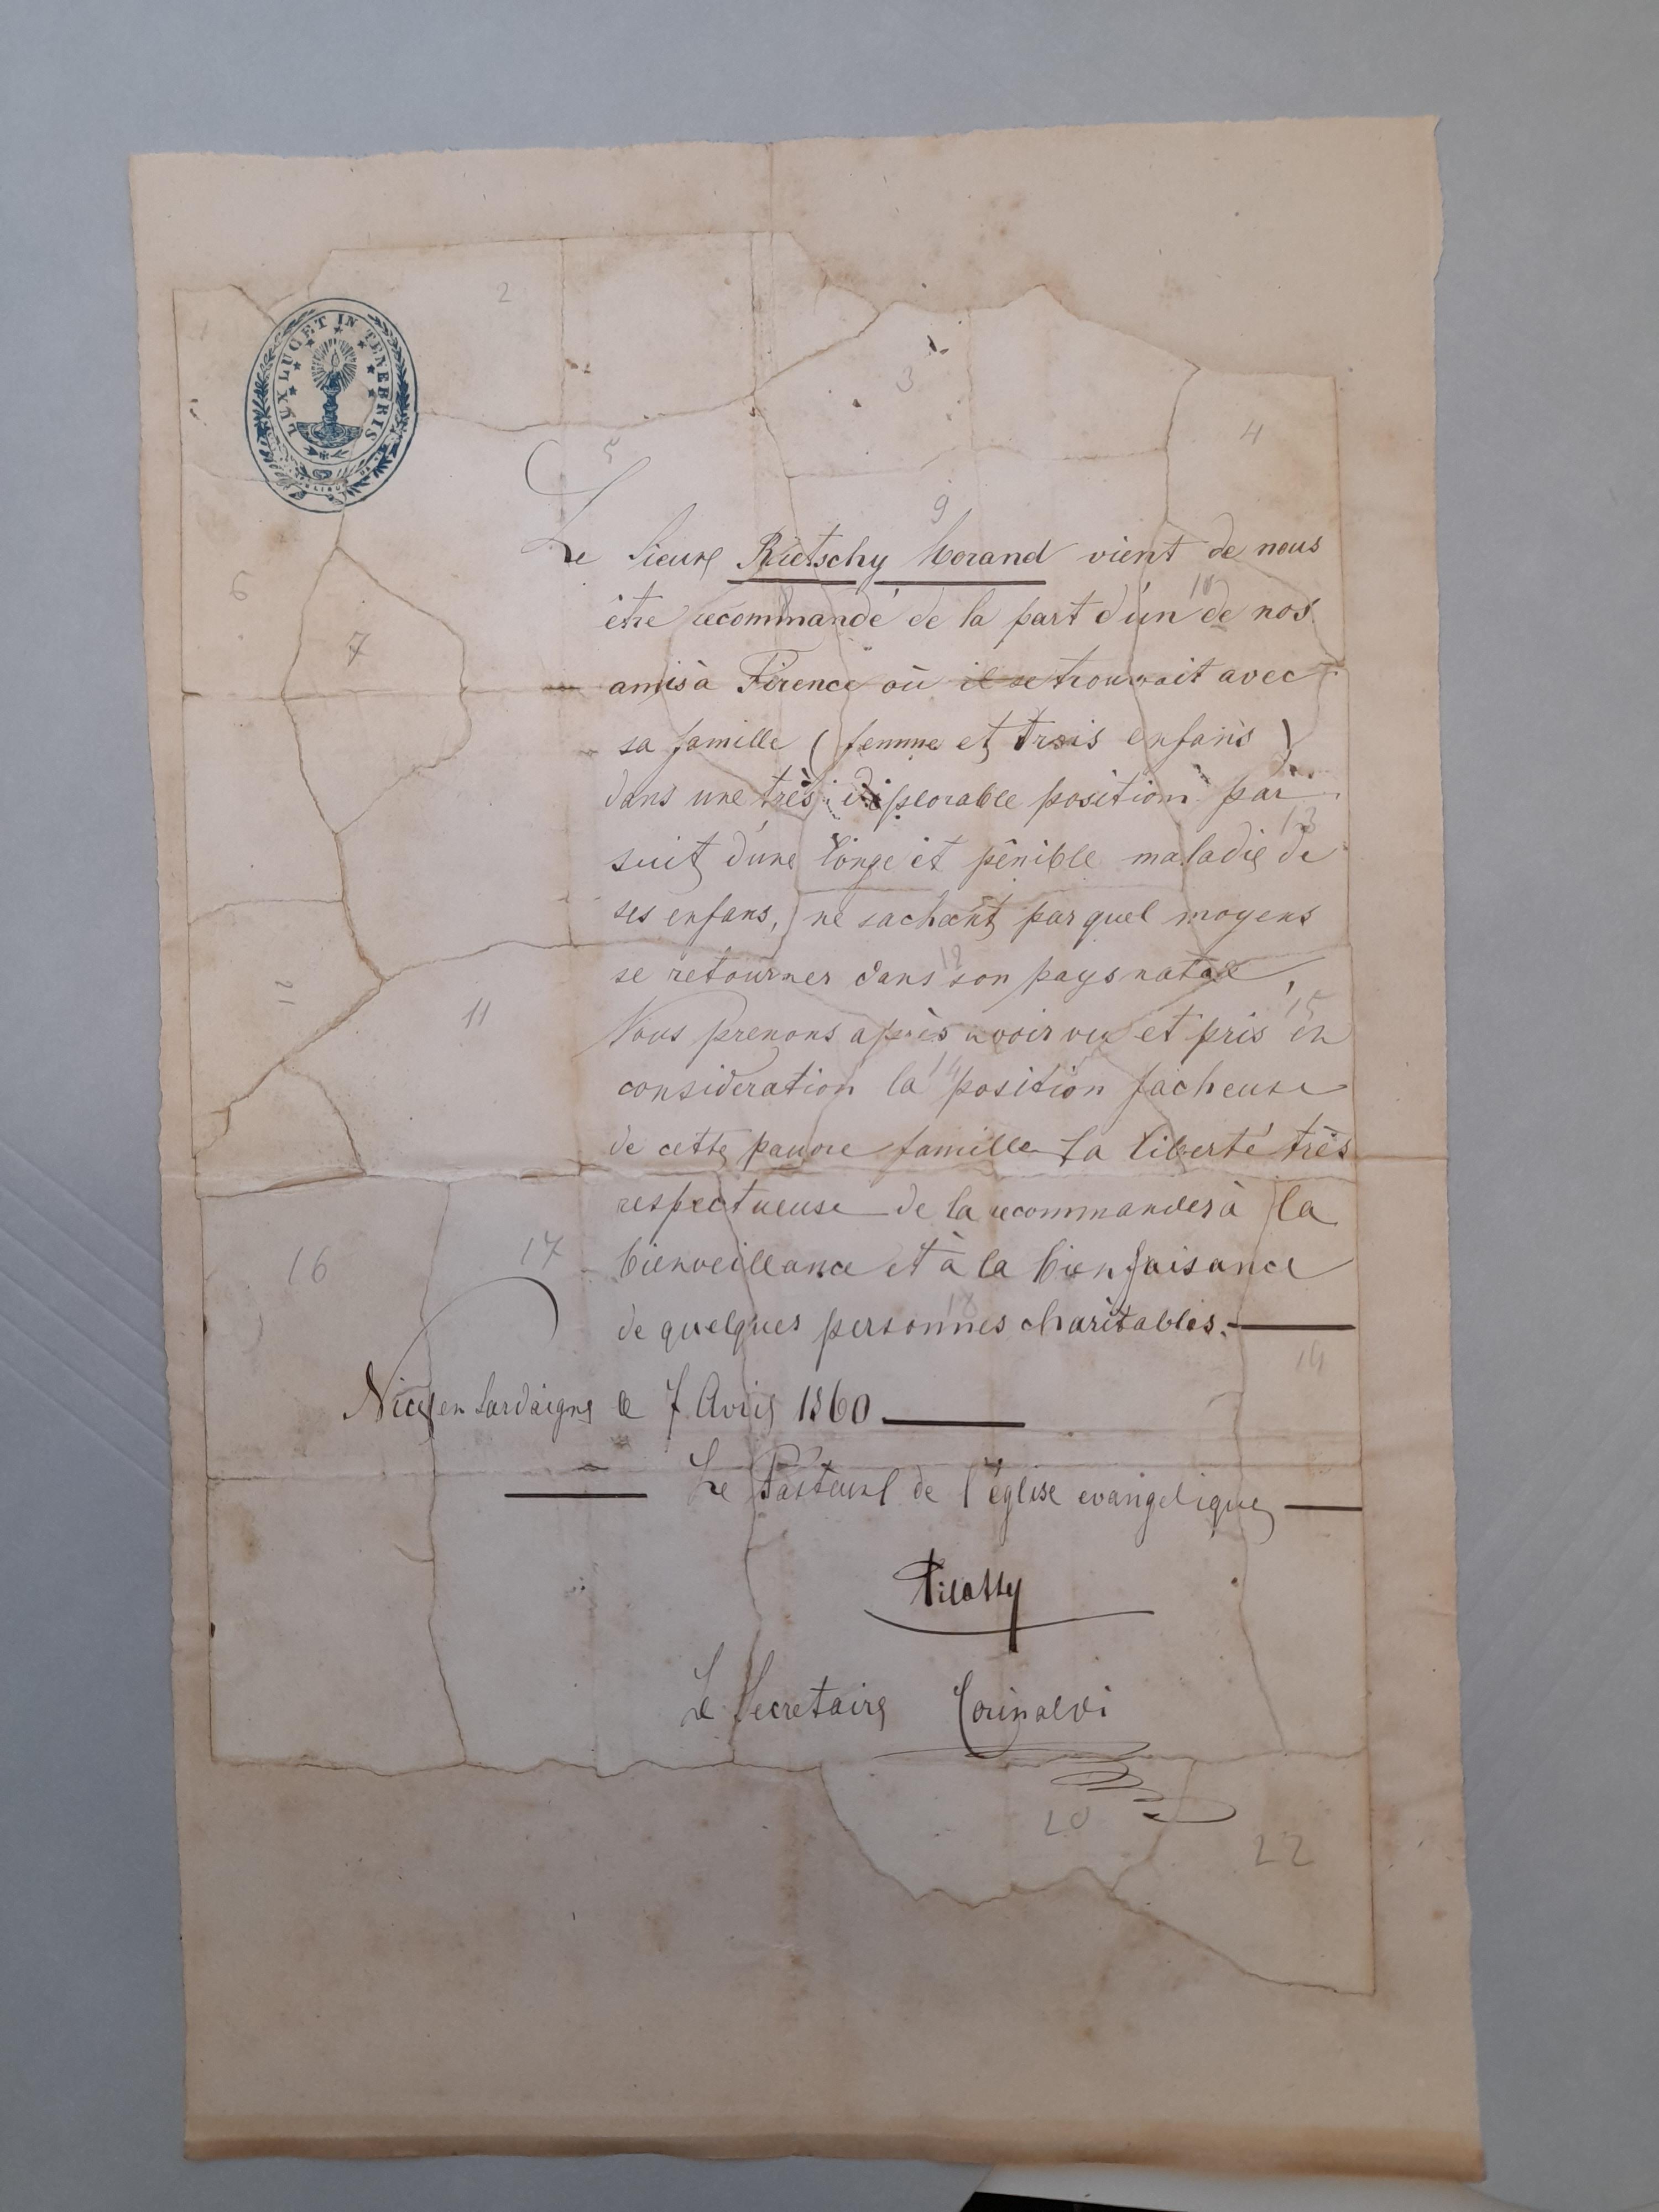 LUX LUCET IN TENEBRIS
2
3
4
5
9
Le Sieur Rietschy Morand vient de nous
6
10
être recommandé de la part d'un de nos
7
amis à Firence où il se trouvait avec
sa famille ( femme et trois enfans )
dans une très déplorable position par
13
suit d'une longe et pénible maladie de
ses enfans, ne sachant par quel moyens
12
se retourner dans son pays natal,
21
11
15
Nous prenons après avoir vu et pris en
14
consideration la position facheuse
de cette pauvre famille la liberté très
respectueuse de la recommander à la
16
17
bienveillance et à la bienfaisance
18
de quelques personnes charitables.
19
Nice en Sardaigne le 7 Avril 1860
Le Pasteur de l'église evangelique
Pilatty
Le Secretaire
20
22